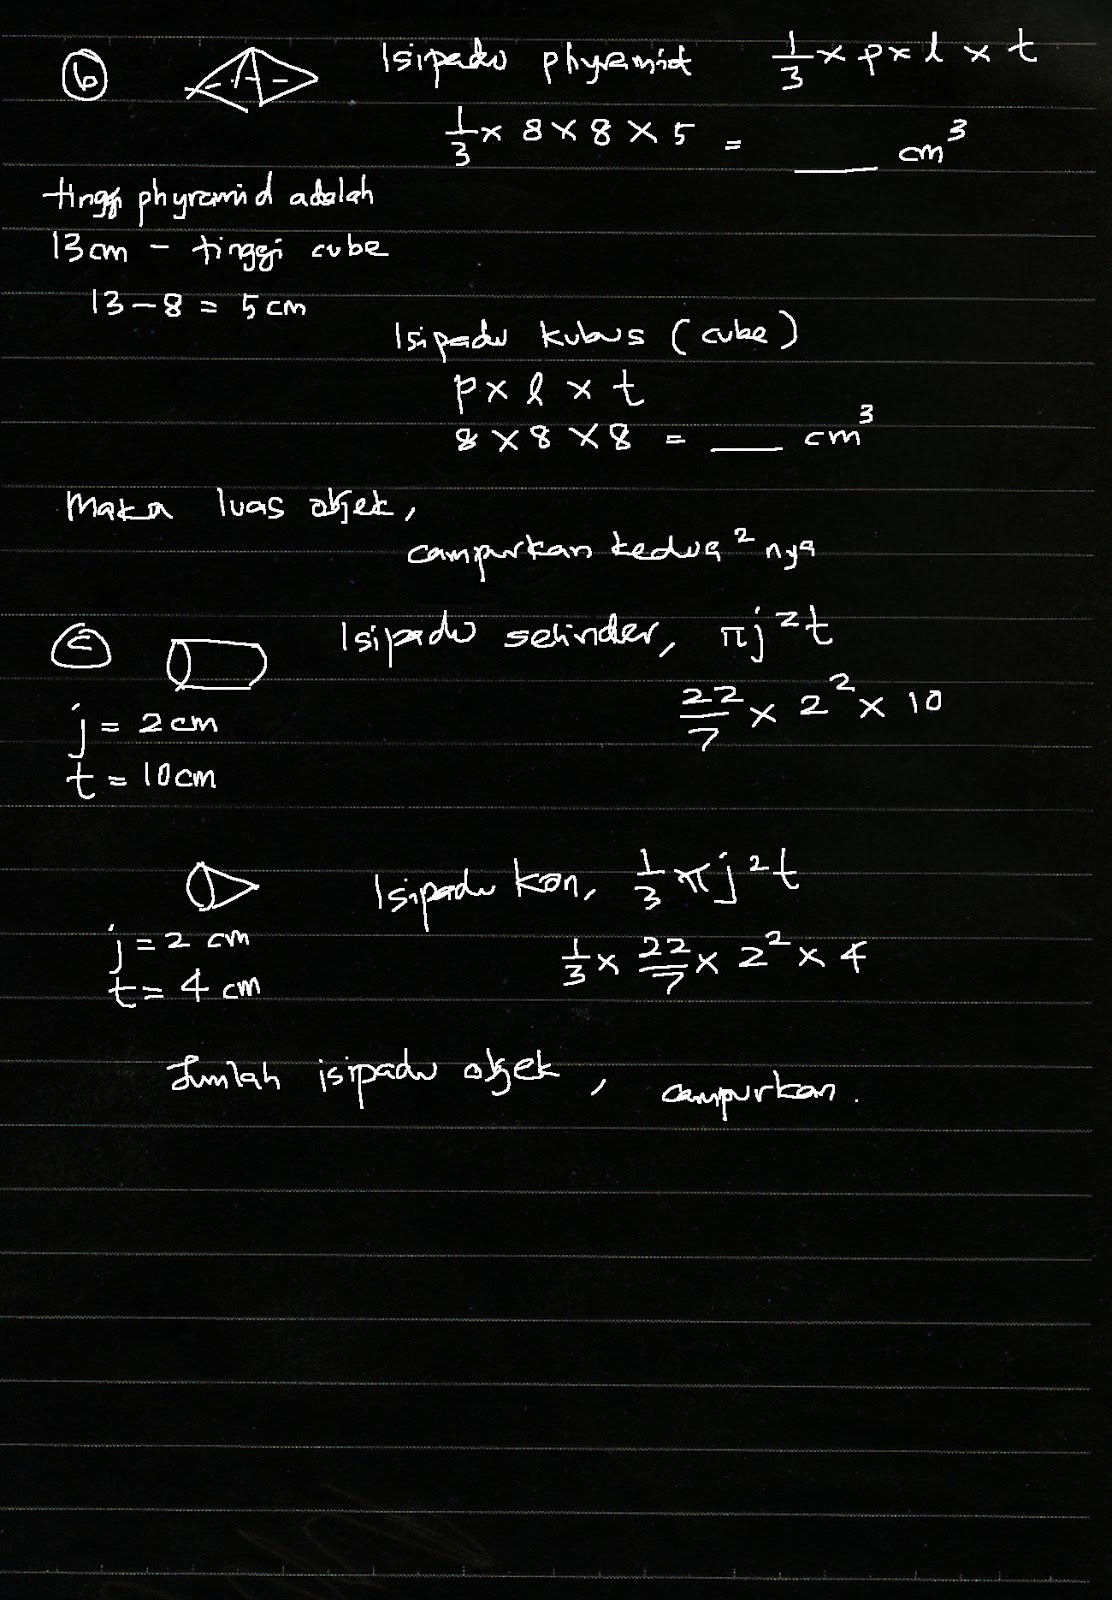 b Isipadu phyramid 1/3 × p × l × t
1/3 × 8 × 8 × 5 = ___ cm³
tinggi phyramid adalah
13cm - tinggi cube
13 - 8 = 5cm
Isipadu kubus (cube)
p × l × t
8 × 8 × 8 = ___ cm³
Maka luas objek,
campurkan kedua²nya
c Isipadu selinder, πj²t
22/7 × 2² × 10
j = 2cm
t = 10cm
Isipadu kon, 1/3 πj²t
j = 2 cm
1/3 × 22/7 × 2² × 4
t = 4 cm
Jumlah isipadu objek, campurkan.